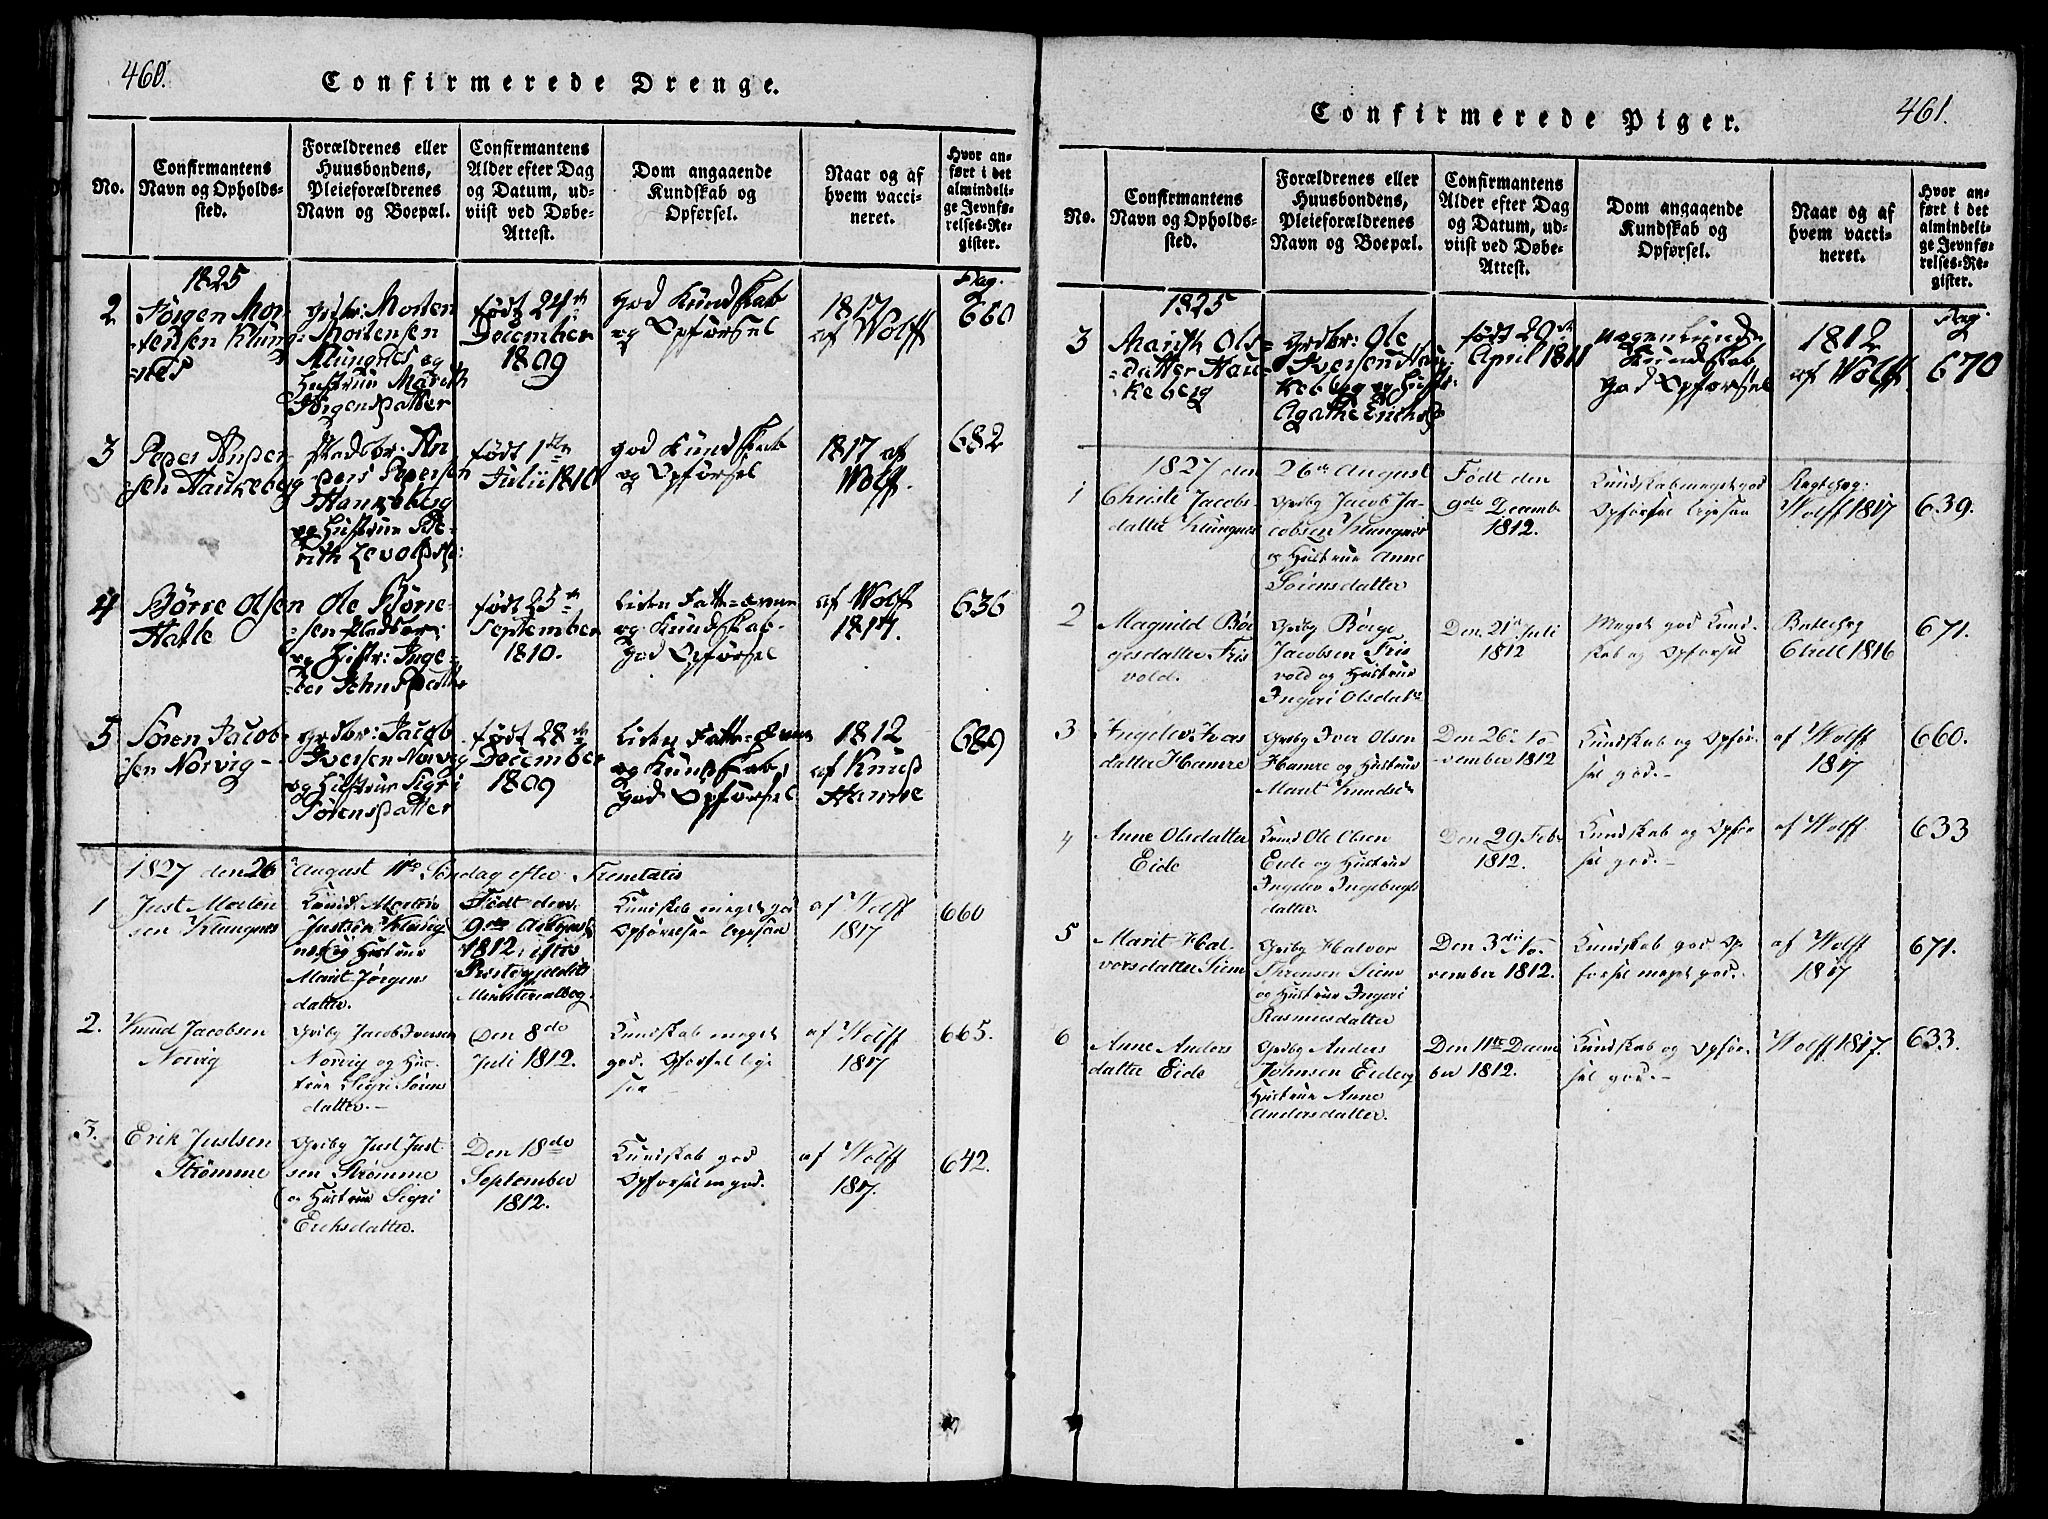 460.
Confirmerede Drenge.
No.
Confirmantens
Navn og Opholds-
sted.
Forældrenes eller
Huusbondens,
Pleieforældrenes
Navn og Boepæl.
Confirmantens
Alder efter Dag
og Datum, ud-
viist ved Døbe-
Attest.
Dom angaaende
Kundskab og
Opførsel.
Naar og af
hvem vacci-
neret.
Hvor an-
ført i det
almindeli-
ge Jevnfø-
relses-Re-
gister.
1825
Pag.
2
Jörgen Mor-
tensen Klung-
næs
Gdbr: Morten
Mortensen
Klungnes og
Hustrue Marith
Jörgensdatter
født 24de
December
1809
god Kundskab
og Opførsel
1817
af Wolff
660
3
Peder Ander-
sen Haukeberg
Pladsbr: An-
ders Pedersen
Haukeberg
og Hustrue Be-
rith
født 1ste
Julii 1810
god Kundskab
og Opførsel
1817 af
Wolff.
682
4
Börre Olsen
Hatle
Ole Börre-
sen Pladsbr:
og Hustr: Inge-
bor Johnsdatter
født 25de
September
1810.
Liden Fatte-evne
og Kundskab.
god Opførsel
af Wolff
1817.
636
5
Sören Jacob-
sen Norvig-
Grdbr: Jacob
Iversen Norvig
og Hustrue Sigri
Sörensdatter
født 28de
December
1809
Liden Fatte-evne
og Kundskab,
god Opførsel
1812
af Knud
Hamre
689
1827 den 26 August 11te Søndag efter Trinitatis
1
Just Morten
sen Klungnes
Morten
Justsen Klung
nes og Hustrue
Marit Jørgens
datter.
Født den
9de
1812
Ministerialbog.
Kundskab meget god
Opførelse ligesaa
af Wolff
1817
660
2.
Knud Jacobsen
Norvig
Grdbg Jacob Iversen
Norvig og Hus-
true Sigri Sørens
datter.-
Den 8de
Juli 1812.
Kundskab meget
god. Opførsel lige
saa
af Wolff
1817
665.
3.
Erik Justsen
Strømme
Grdbg Just Just-
sen Strømme
og Hustrue Sigri
Eriksdatter.
Den 18de
September
1812.
Kundskab god
Opførsel god.
af Wolff
1817.
642.
461.
Confirmerede Piger.
No.
Confirmantens
Navn og Opholds-
sted.
Forældrenes eller
Huusbondens,
Pleieforældrenes
Navn og Boepæl.
Confirmantens
Alder efter Dag
og Datum, ud-
viist ved Døbe-
Attest.
Dom angaaende
Kundskab og
Opførsel.
Naar og af
hvem vacci-
neret.
Hvor an-
ført i det
almindeli-
ge Jevnfø-
relses-Re-
gister.
1825
Pag.
3
Marith Ols-
datter Hau-
keberg
Grdbr: Ole
Iversen Hau-
keberg og Hustr:
Agathe Erichsd
født 20de
April 1811
nogenlunde
Kundskab
god Opførsel
1812
af Wolff
670
1827 den 26de August
1
Christi Jacobs-
datter Klungnes
Grdbg Jacob Ja-
cobsen Klungnes
og Hustrue Anne
Sørensdatter
Født den
9de Decembr
1812.
Kundskab meget god
Opførsel ligesaa
Wolff 1817
639.
2
Magnild Bør
gesdatter Fris
vold.
Grdbg Børge
Jacobsen Fris
vold og Hustrue
Ingeri Olsdatr
Den 21de Juli
1812
Meget god Kund-
skab og Opførsel
1816
671.
3
Ingelev Ivers
datter Hamre
Grdbg Iver Olsen
Hamre og Hustrue
Marit Knudsdr
Den 26de No-
vember 1812
Kundskab og Opfør-
sel god.-
af Wolff
1817
660.
4
Anne Olsdatter
Eide
Ole Olsen
Eide og Hustrue
Ingelev Ingebrigts
datter.
Den 29 Febr
1812.
Kundskab og Opfør
sel god.-
af Wolff
633
5
Marit Hal-
vorsdatter Siem
Grdbg Halvor
Siem
og Hustrue Ingeri
Rasmusdatter
Den 3die No-
vember 1812.
Kundskab god Op
førsel meget god.
af Wolff
1817
671.
6
Anne Anders
datter Eide
Grdbg Anders
Johnsen Eide og
Hustrue Anne
Andersdatter.
Den 11te Decem
ber 1812.
Kundskab og Opfør-
sel god.-
Wolff 1817.
633.